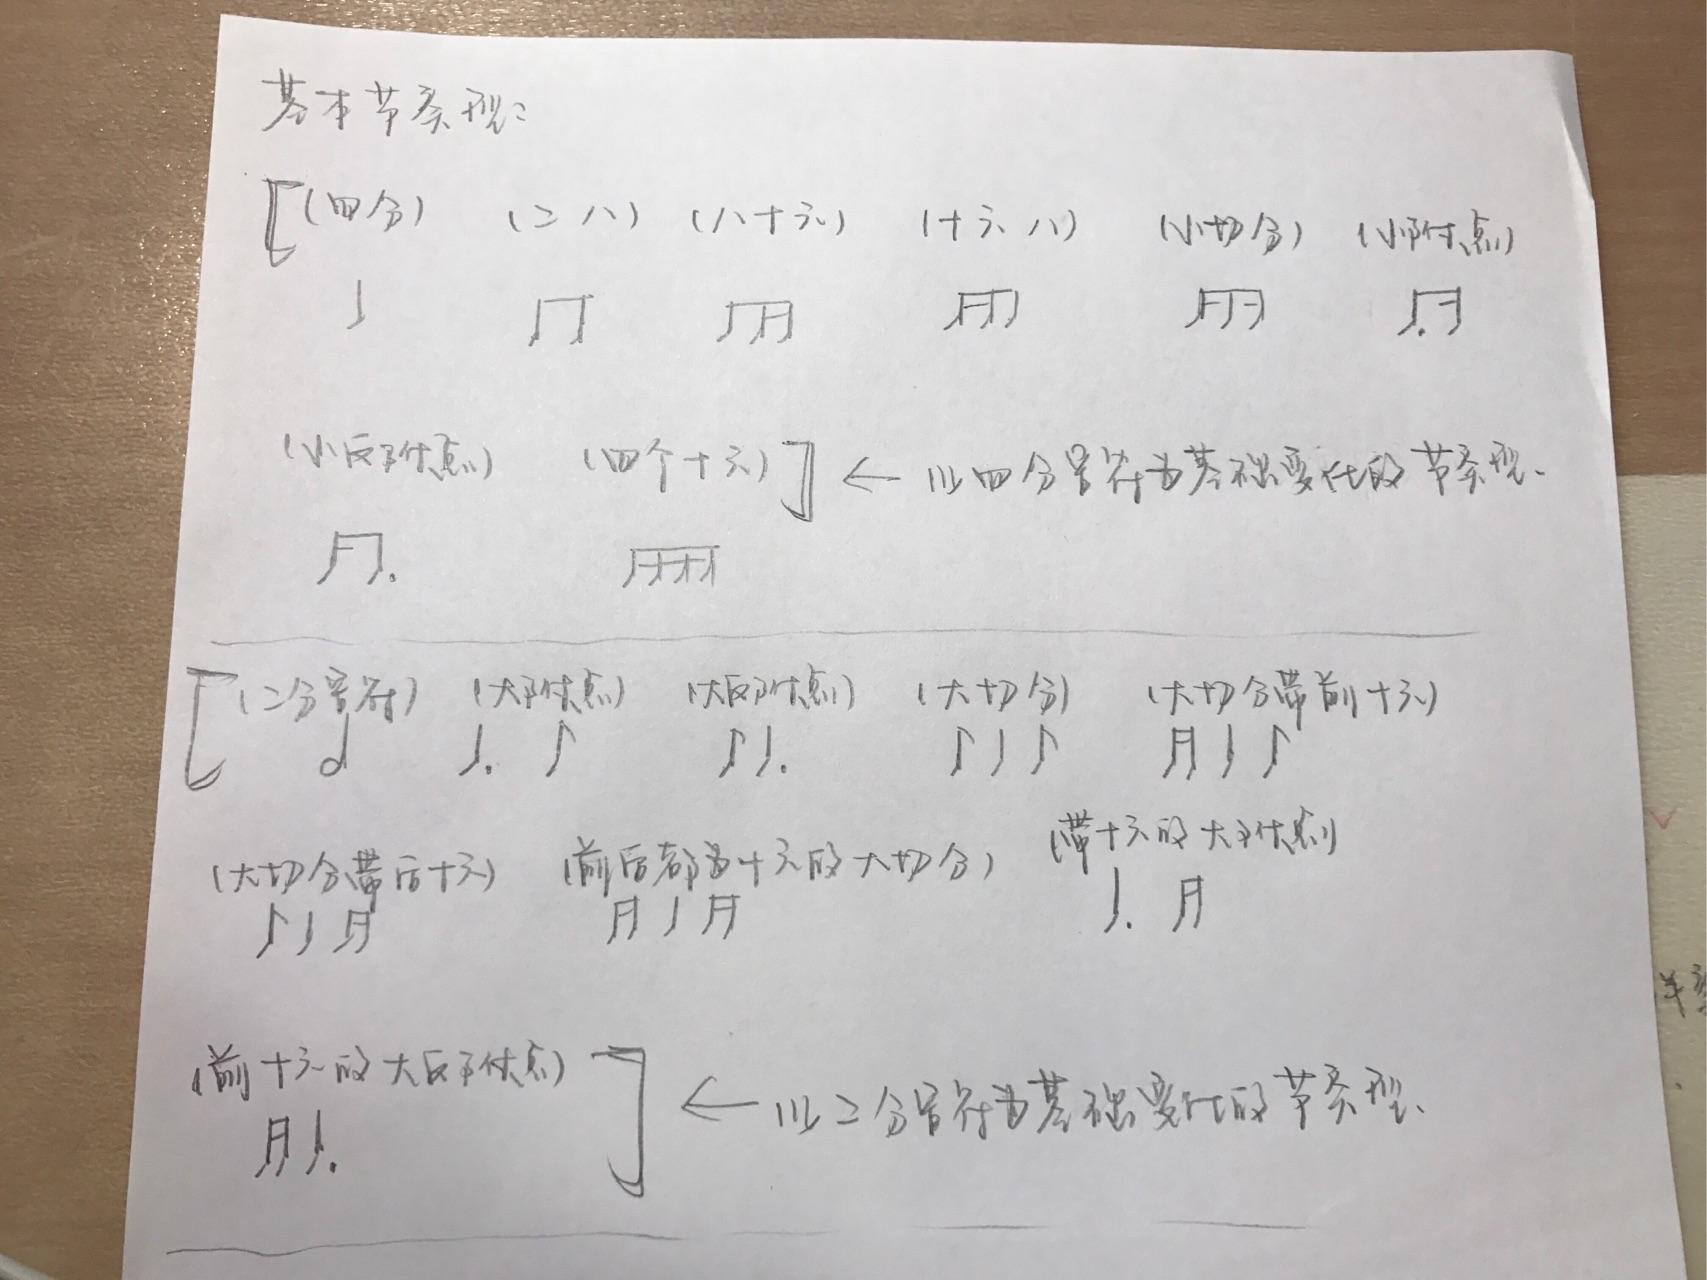 基本节奏型：
(四分) (二八) (八十六) (十六八) (小切分) (小附点)
(小反附点) (四个十六) ← 以四分音符为基础变化的节奏型.
(二分音符) (大附点) (大反附点) (大切分) (大切分带前十六)
(大切分带后十六) (前后都为十六的大切分) (带十六的大附点)
(前十六的大反附点) ← 以二分音符为基础变化的节奏型.